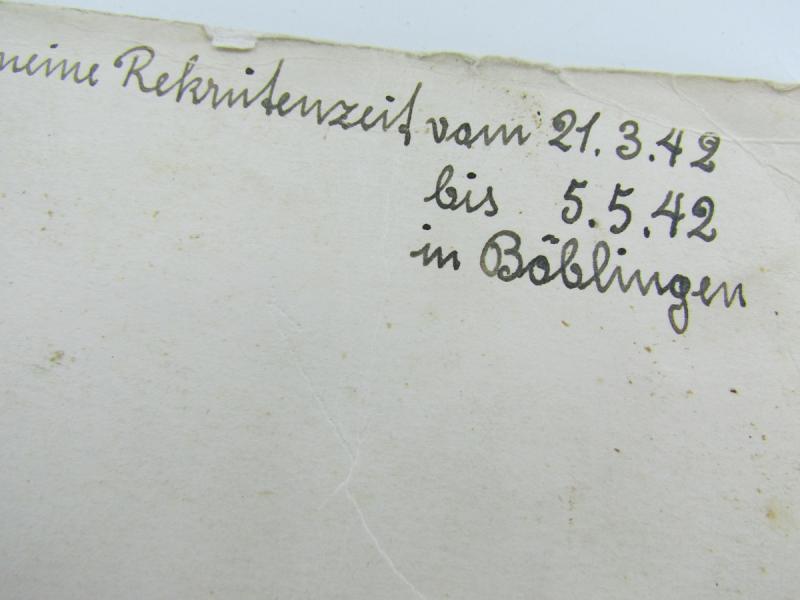 meine Rekrutenzeit vom 21.3.42
bis 5.5.42
in Böblingen